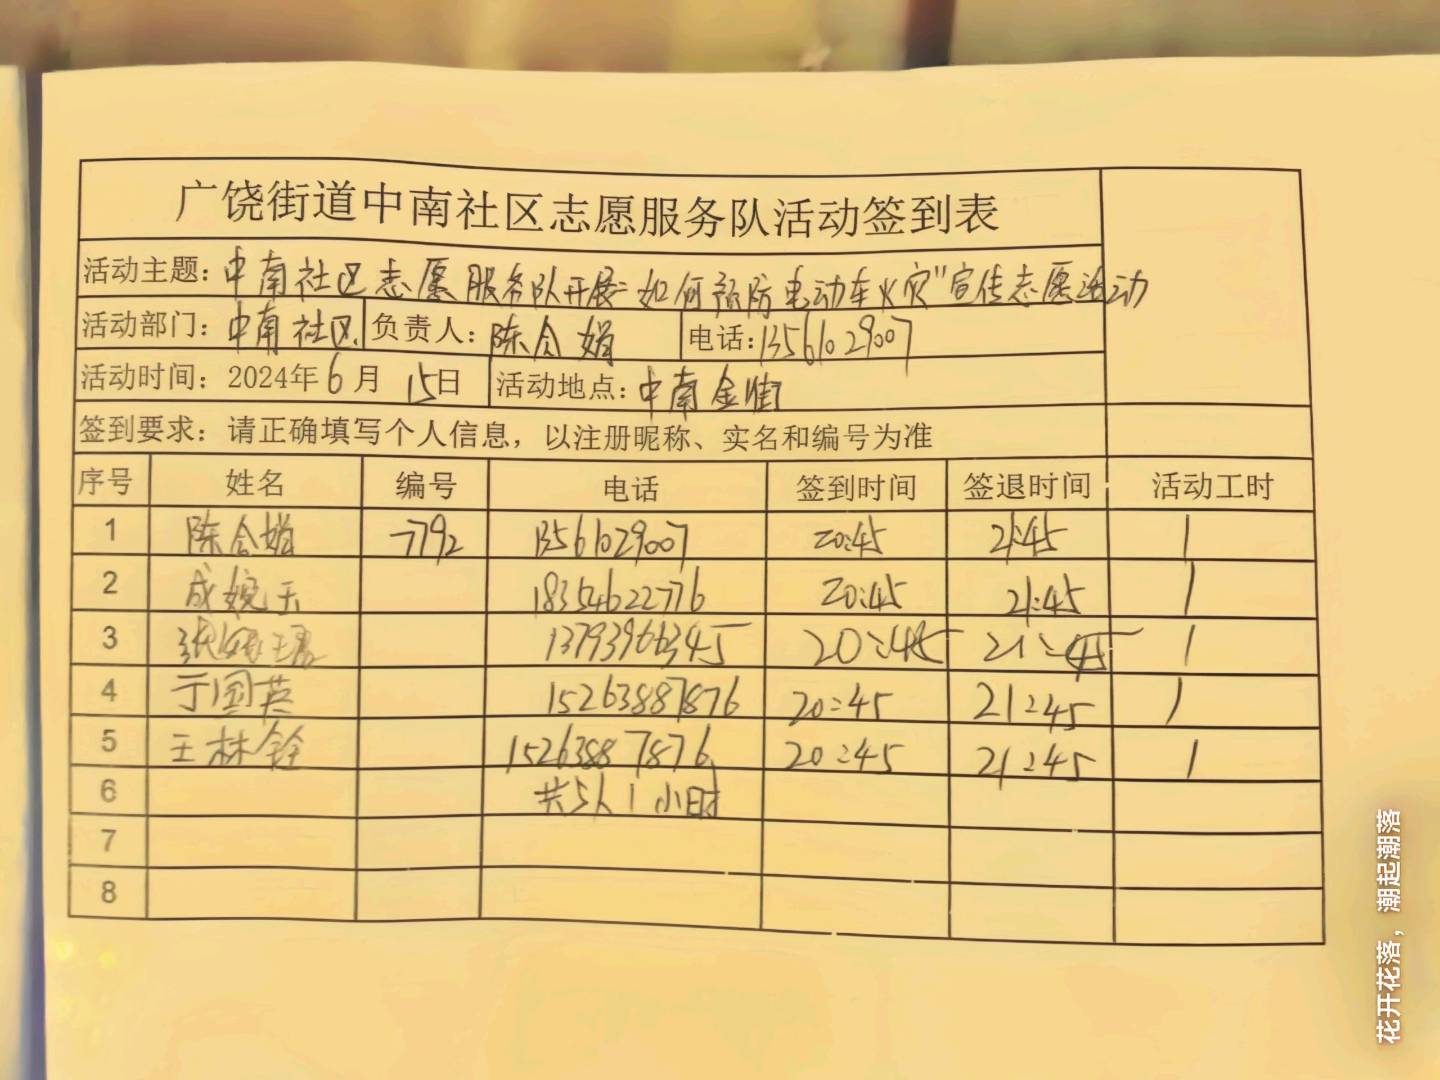 广饶街道中南社区志愿服务队活动签到表
活动主题：中南社区志愿服务队开展"如何预防电动车火灾"宣传志愿活动
活动部门：中南社区 负责人：陈合娟 电话：13561029007
活动时间：2024年6月15日 活动地点：中南金街
签到要求：请正确填写个人信息，以注册昵称、实名和编号为准
序号 姓名 编号 电话 签到时间 签退时间 活动工时
1 陈合娟 7792 13561029007 20:45 21:45 1
2 成婉玉 18354622776 20:45 21:45 1
3 13793966345 20:45 21:45 1
4 于国英 15263887876 20:45 21:45 1
5 王林铨 15263887876 20:45 21:45 1
6 共5人1小时
7
8
花开花落，潮起潮落